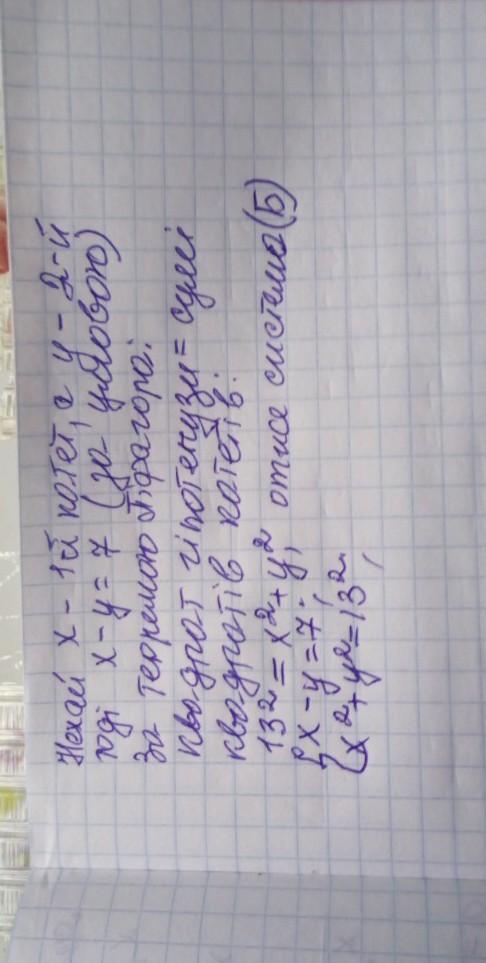 Нехай х - 1й катет, а у - 2-й
тоді х - у = 7 (за умовою)
За теоремою Піфагора:
квадрат гіпотенузи = сумі
квадратів катетів:
13² = х² + у², отже система (Б)
{ х - у = 7;
{ х² + у² = 13².